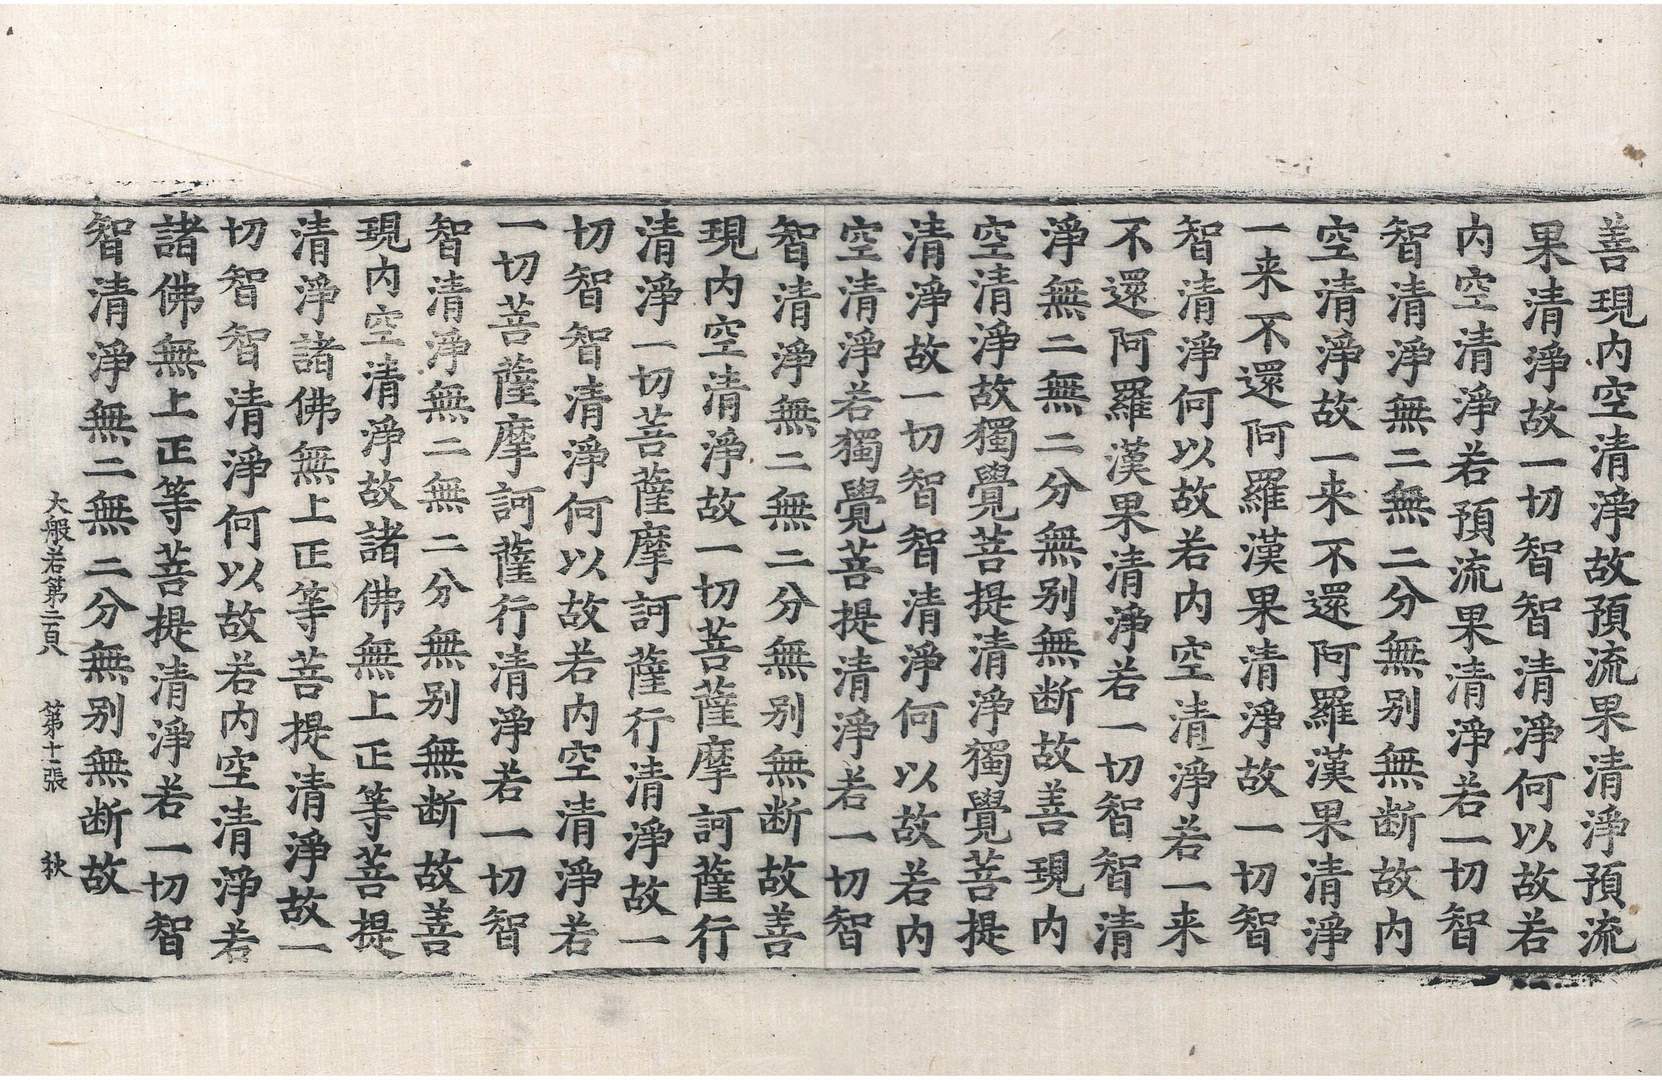 善現内空清淨故預流果清淨預流
果清淨故一切智智清淨何以故若
内空清淨若預流果清淨若一切智
智清淨無二無二分無别無断故内
空清淨故一来不還阿羅漢果清淨
一来不還阿羅漢果清淨故一切智
智清淨何以故若内空清淨若一来
不還阿羅漢果清淨若一切智智清
淨無二無二分無别無断故善現内
空清淨故獨覺菩提清淨獨覺菩提
清淨故一切智智清淨何以故若内
空清淨若獨覺菩提清淨若一切智
智清淨無二無二分無别無断故善
現内空清淨故一切菩薩摩訶薩行
清淨一切菩薩摩訶薩行清淨故一
切智智清淨何以故若内空清淨若
一切菩薩摩訶薩行清淨若一切智
智清淨無二無二分無别無断故善
現内空清淨故諸佛無上正等菩提
清淨諸佛無上正等菩提清淨故一
切智智清淨何以故若内空清淨若
諸佛無上正等菩提清淨若一切智
智清淨無二無二分無别無断故
大般若第二百 第十一張 秋